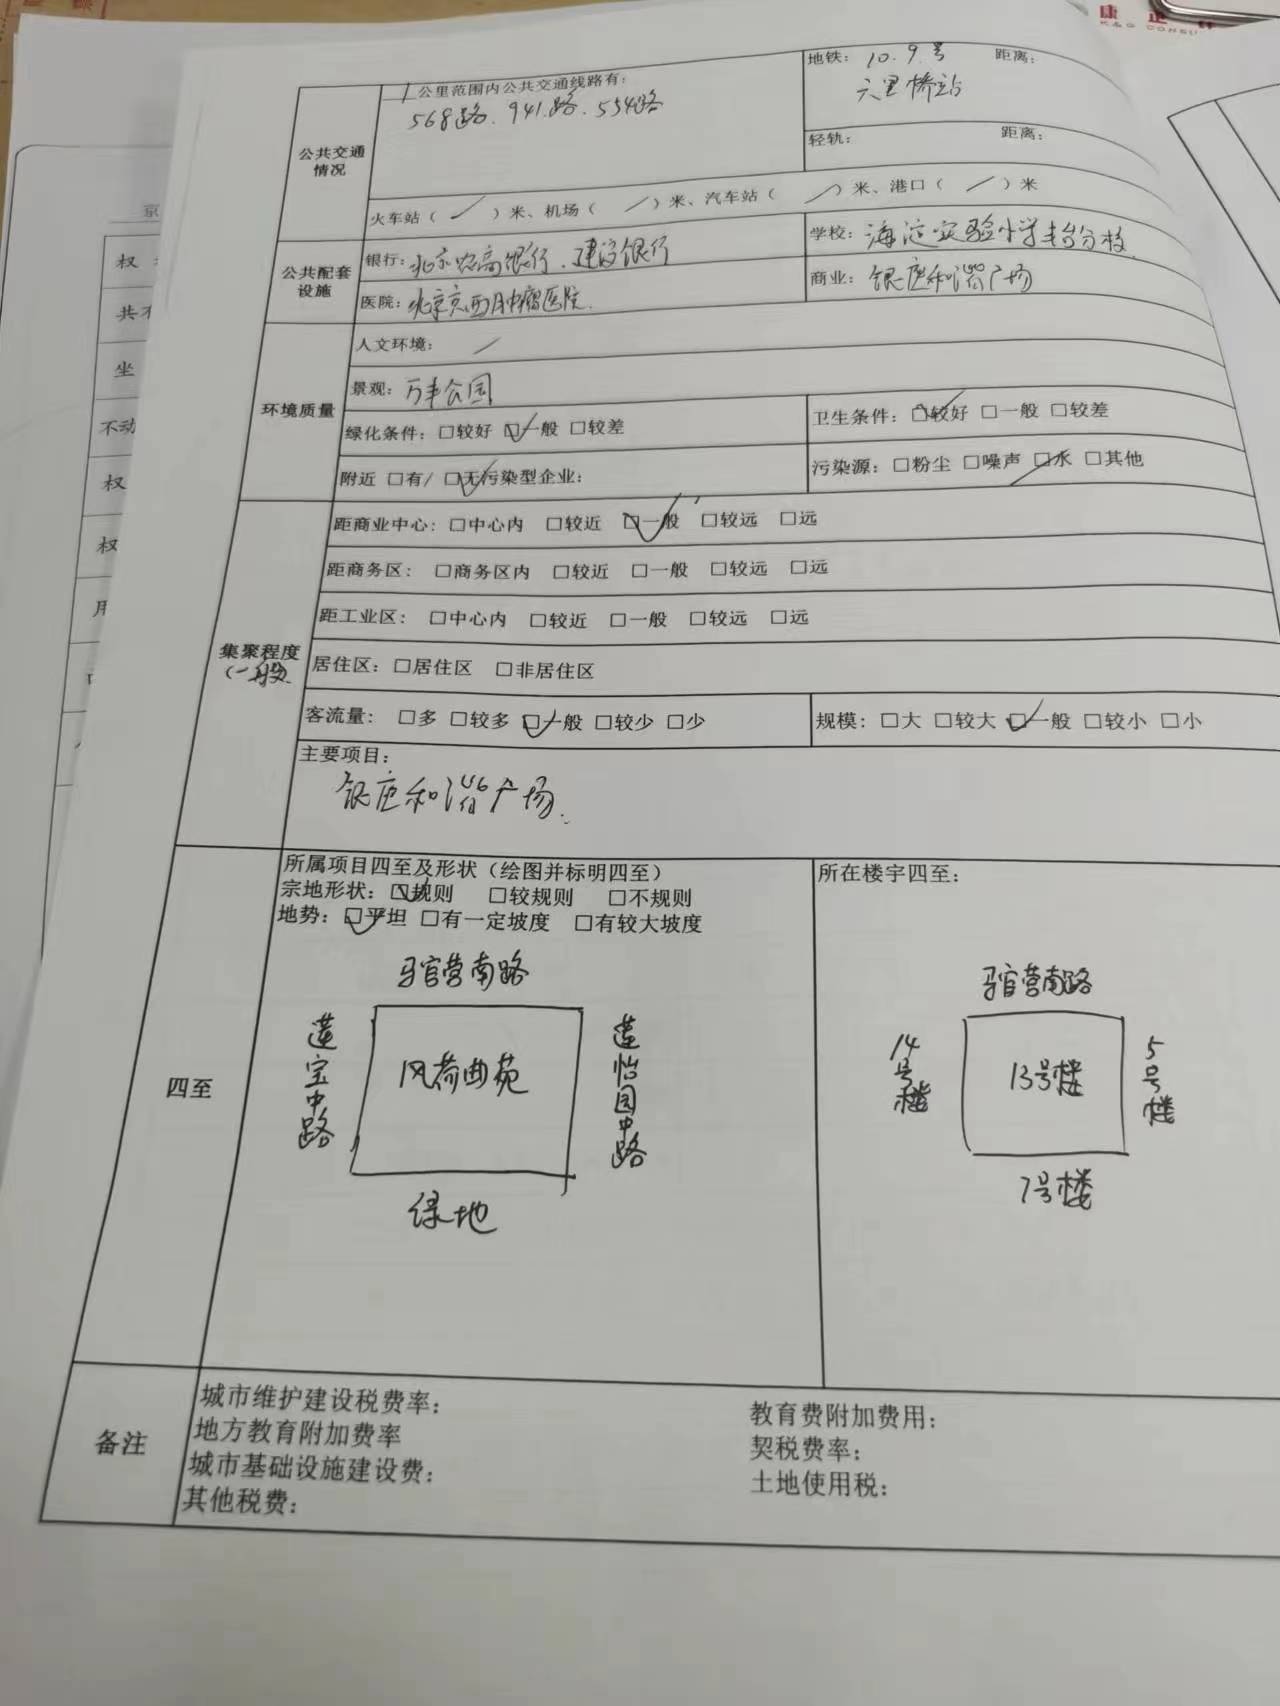 康正
K&G CONSU
京
权
共
坐
不动
权
权
用
公共交通情况
1公里范围内公共交通线路有:
568路、941路、554路
地铁: 10、9、号 距离:
六里桥站
轻轨: 距离:
火车站( / )米、机场( / )米、汽车站( / )米、港口( / )米
公共配套设施
银行: 北京农商银行、建设银行
学校: 海淀实验小学丰台分校
医院: 北京京西肿瘤医院.
商业: 银座和谐广场
环境质量
人文环境: /
景观: 万丰公园
绿化条件: □较好 ☑一般 □较差
卫生条件: ☑较好 □一般 □较差
附近 □有/ ☑无污染型企业:
污染源: □粉尘 □噪声 □水 □其他
集聚程度
(一般)
距商业中心: □中心内 □较近 ☑一般 □较远 □远
距商务区: □商务区内 □较近 □一般 □较远 □远
距工业区: □中心内 □较近 □一般 □较远 □远
居住区: □居住区 □非居住区
客流量: □多 □较多 ☑一般 □较少 □少
规模: □大 □较大 ☑一般 □较小 □小
主要项目:
银座和谐广场.
四至
所属项目四至及形状(绘图并标明四至)
宗地形状: ☑规则 □较规则 □不规则
地势: ☑平坦 □有一定坡度 □有较大坡度
马官营南路
莲宝中路
风荷曲苑
莲怡园中路
绿地
所在楼宇四至:
马官营南路
14号楼
13号楼
5号楼
7号楼
备注
城市维护建设税费率:
教育费附加费用:
地方教育附加费率
契税费率:
城市基础设施建设费:
土地使用税:
其他税费: